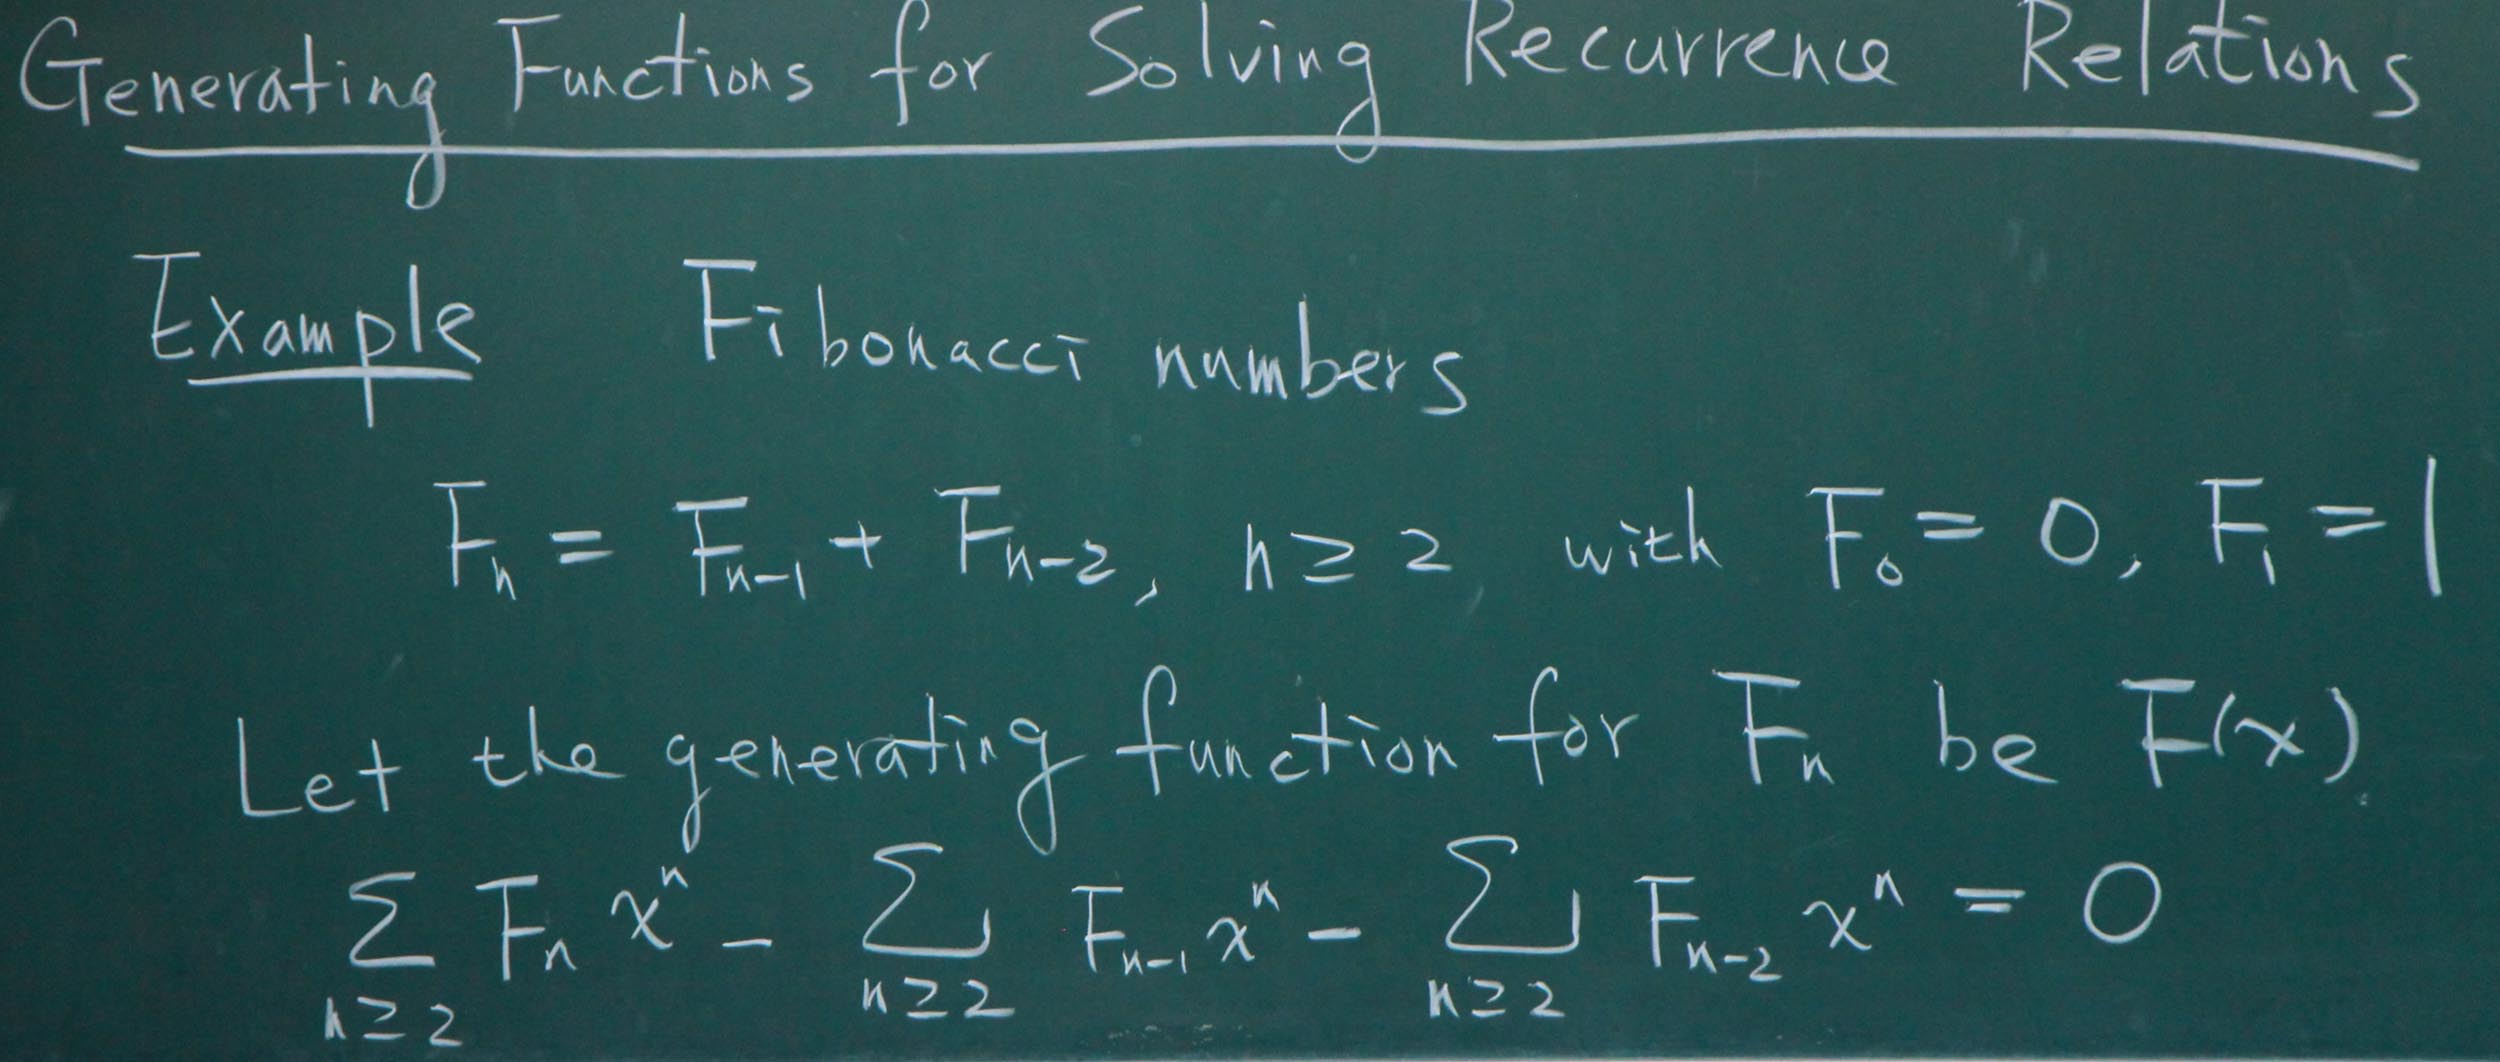 Generating Functions for Solving Recurrence Relations
Example Fibonacci numbers
Fₙ = Fₙ₋₁ + Fₙ₋₂, n ≥ 2 with F₀ = 0, F₁ = 1
Let the generating function for Fₙ be F(x).
∑_{n≥2} Fₙ xⁿ - ∑_{n≥2} Fₙ₋₁ xⁿ - ∑_{n≥2} Fₙ₋₂ xⁿ = 0